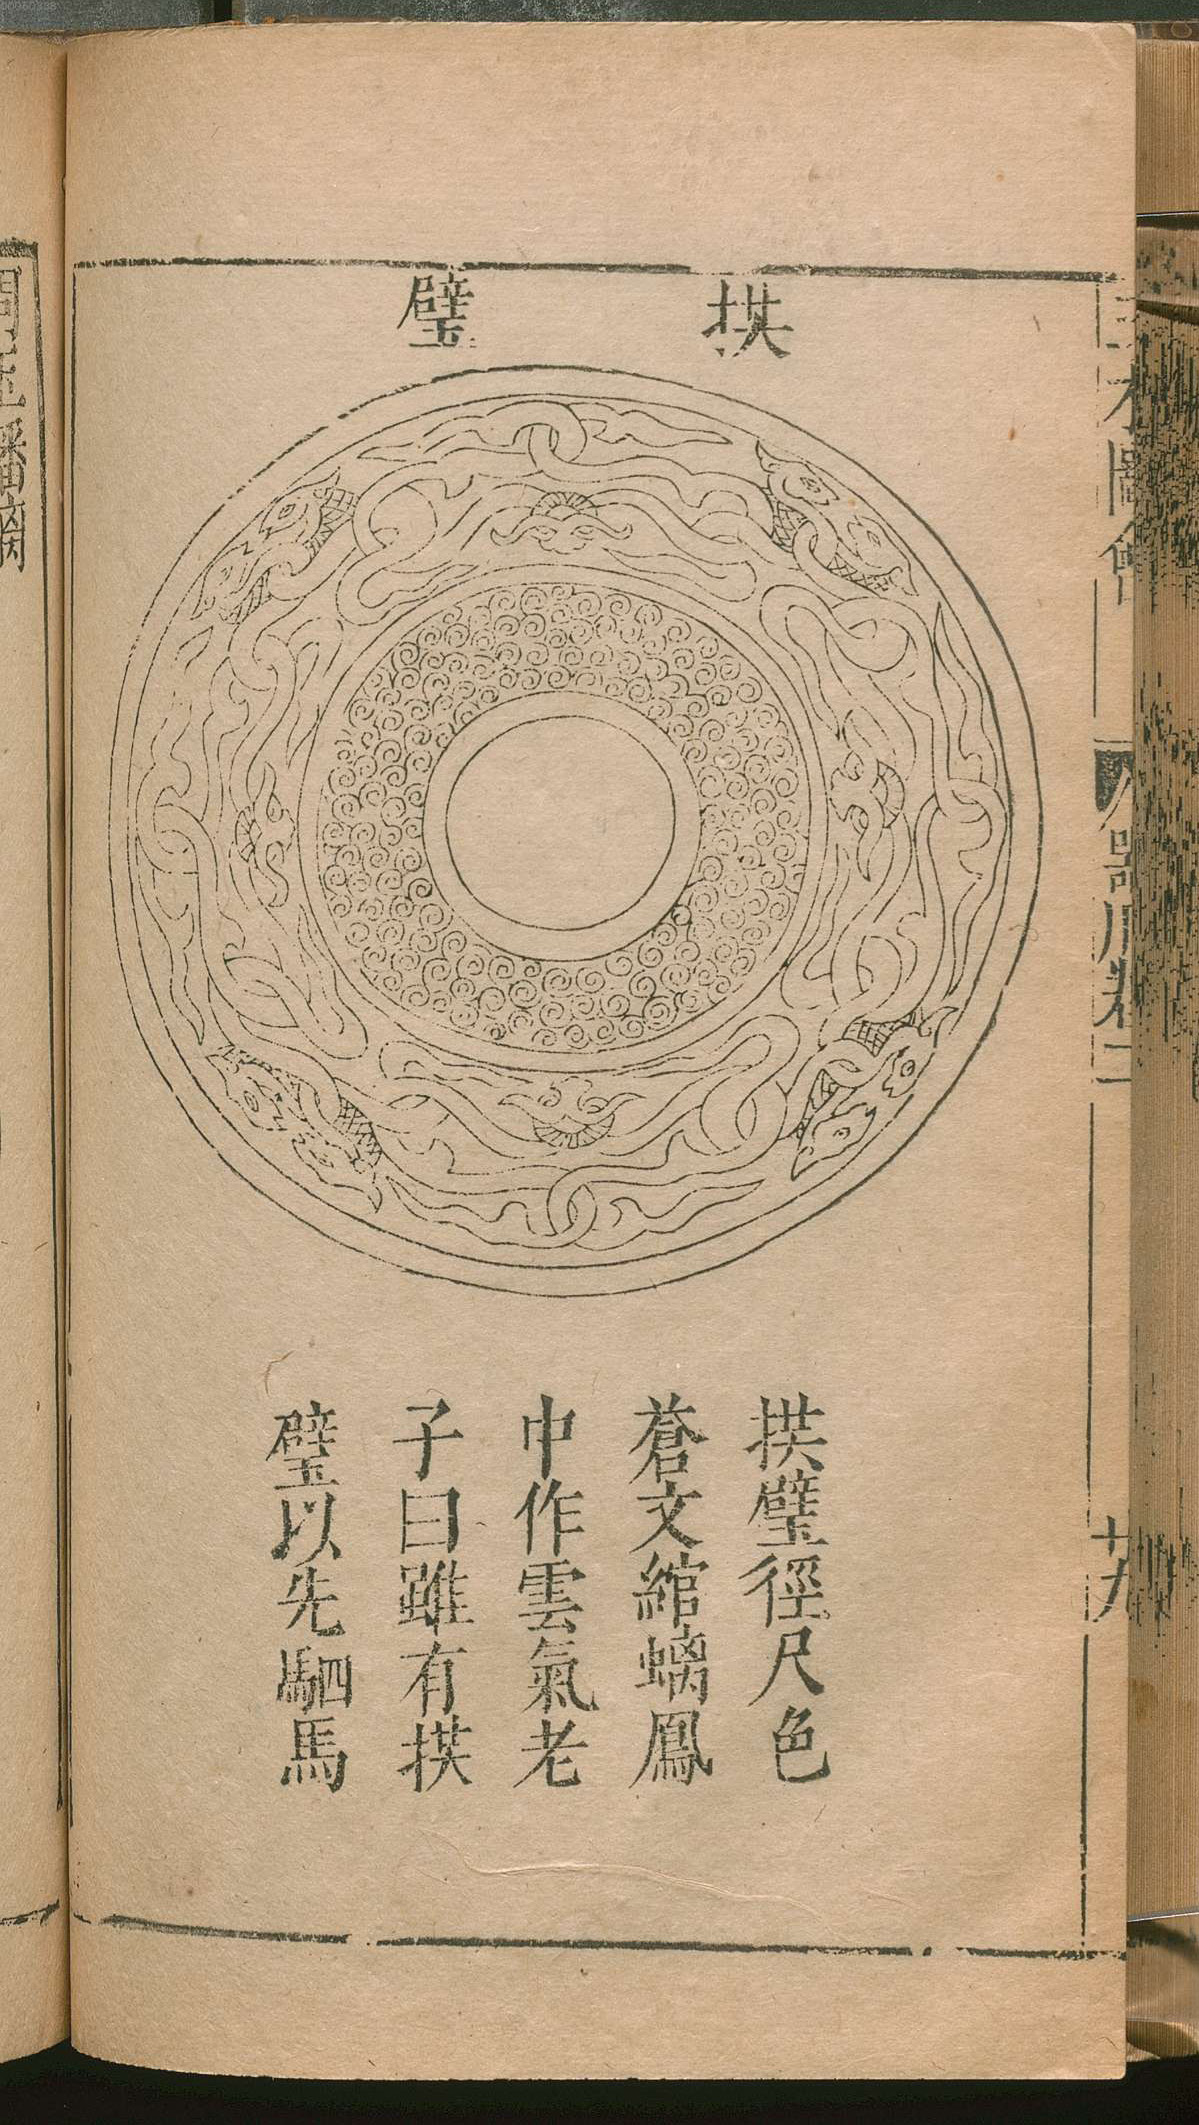 拱璧
拱璧徑尺色
蒼文綰螭鳳
中作雲氣老
子曰雖有拱
璧以先駟馬
三才圖會
器用卷二
廿九
00050338